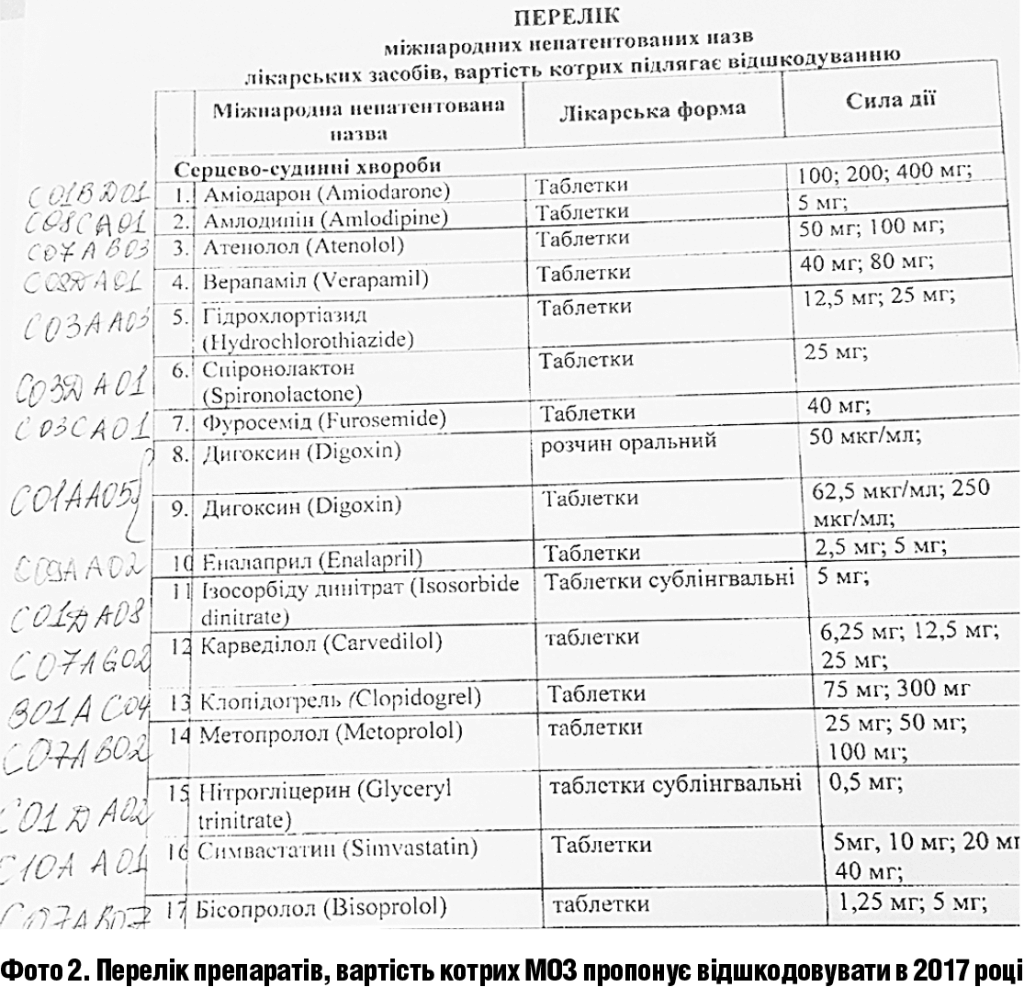 ПЕРЕЛІК
міжнародних непатентованих назв
лікарських засобів, вартість котрих підлягає відшкодуванню
Міжнародна непатентована назва Лікарська форма Сила дії
Серцево-судинні хвороби
C01BD01 1. Аміодарон (Amiodarone) Таблетки 100; 200; 400 мг;
C08CA01 2. Амлодипін (Amlodipine) Таблетки 5 мг;
C07AB03 3. Атенолол (Atenolol) Таблетки 50 мг; 100 мг;
C08DA01 4. Верапаміл (Verapamil) Таблетки 40 мг; 80 мг;
C03AA03 5. Гідрохлортіазид Таблетки 12,5 мг; 25 мг;
(Hydrochlorothiazide)
C03DA01 6. Спіронолактон Таблетки 25 мг;
(Spironolactone)
C03CA01 7. Фуросемід (Furosemide) Таблетки 40 мг;
8. Дигоксин (Digoxin) розчин оральний 50 мкг/мл;
C01AA05 9. Дигоксин (Digoxin) Таблетки 62,5 мкг/мл; 250
мкг/мл;
C09AA02 10 Еналаприл (Enalapril) Таблетки 2,5 мг; 5 мг;
C01DA08 11 Ізосорбіду динітрат (Isosorbide Таблетки сублінгвальні 5 мг;
dinitrate)
C07AG02 12 Карведілол (Carvedilol) таблетки 6,25 мг; 12,5 мг;
25 мг;
B01AC04 13 Клопідогрель (Clopidogrel) Таблетки 75 мг; 300 мг
C07AB02 14 Метопролол (Metoprolol) таблетки 25 мг; 50 мг;
100 мг;
C01DA02 15 Нітрогліцерин (Glyceryl таблетки сублінгвальні 0,5 мг;
trinitrate)
C10AA01 16 Симвастатин (Simvastatin) Таблетки 5мг, 10 мг; 20 мг
40 мг;
C07AB07 17 Бісопролол (Bisoprolol) таблетки 1,25 мг; 5 мг;
Фото 2. Перелік препаратів, вартість котрих МОЗ пропонує відшкодовувати в 2017 році